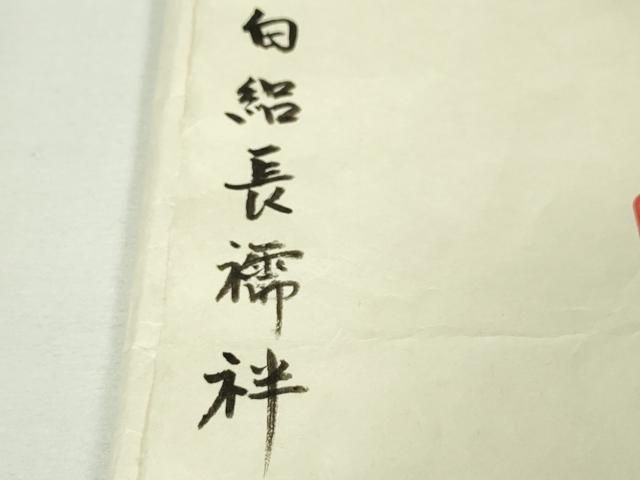 白絽長襦袢